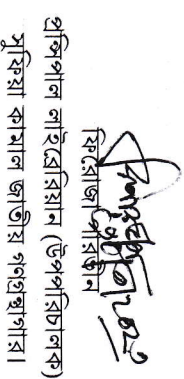 ফিরোজা পারভীন
প্রিন্সিপাল লাইব্রেরিয়ান (উপপরিচালক)
সুফিয়া কামাল জাতীয় গণগ্রন্থাগার।